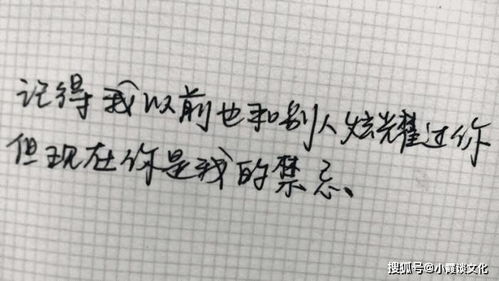 记得我以前也和别人炫耀过你
但现在你是我的禁忌、
搜狐号@小霞谈文化